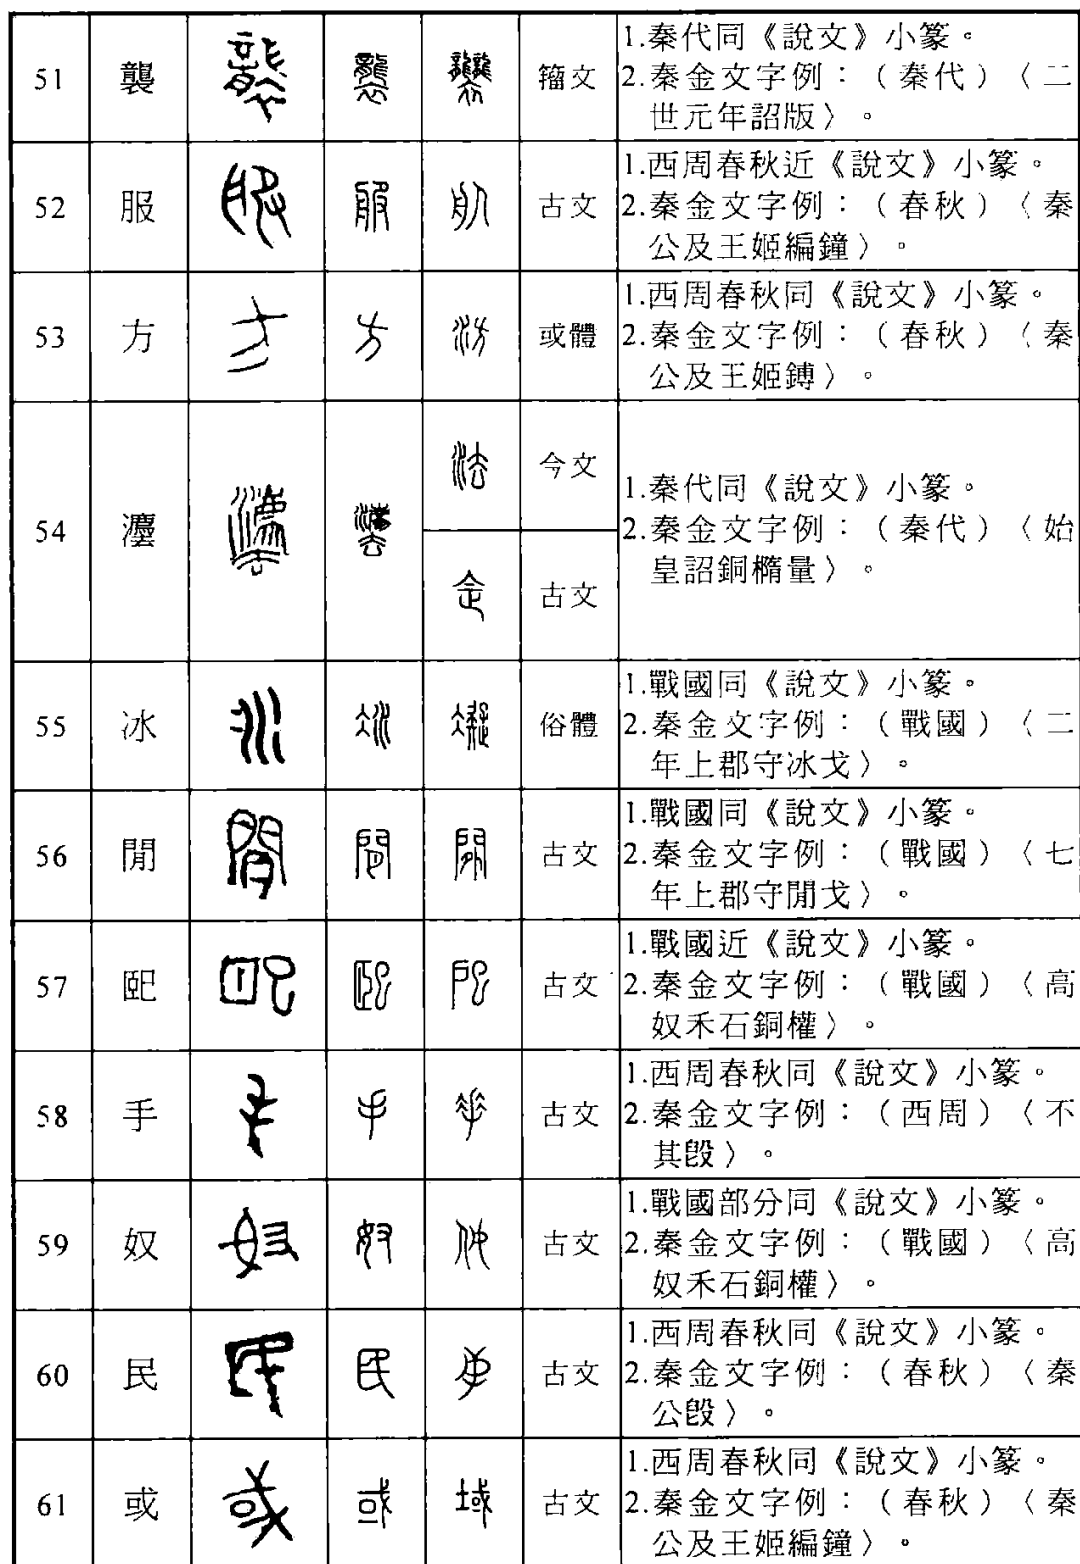 51 襲 籀文 1.秦代同《說文》小篆。
2.秦金文字例：（秦代）〈二
世元年詔版〉。
52 服 古文 1.西周春秋近《說文》小篆。
2.秦金文字例：（春秋）〈秦
公及王姬編鐘〉。
53 方 或體 1.西周春秋同《說文》小篆。
2.秦金文字例：（春秋）〈秦
公及王姬鎛〉。
54 灋 今文 1.秦代同《說文》小篆。
2.秦金文字例：（秦代）〈始
皇詔銅橢量〉。
古文
55 冰 俗體 1.戰國同《說文》小篆。
2.秦金文字例：（戰國）〈二
年上郡守冰戈〉。
56 閒 古文 1.戰國同《說文》小篆。
2.秦金文字例：（戰國）〈七
年上郡守閒戈〉。
57 巸 古文 1.戰國近《說文》小篆。
2.秦金文字例：（戰國）〈高
奴禾石銅權〉。
58 手 古文 1.西周春秋同《說文》小篆。
2.秦金文字例：（西周）〈不
其𣪘〉。
59 奴 古文 1.戰國部分同《說文》小篆。
2.秦金文字例：（戰國）〈高
奴禾石銅權〉。
60 民 古文 1.西周春秋同《說文》小篆。
2.秦金文字例：（春秋）〈秦
公𣪘〉。
61 或 古文 1.西周春秋同《說文》小篆。
2.秦金文字例：（春秋）〈秦
公及王姬編鐘〉。